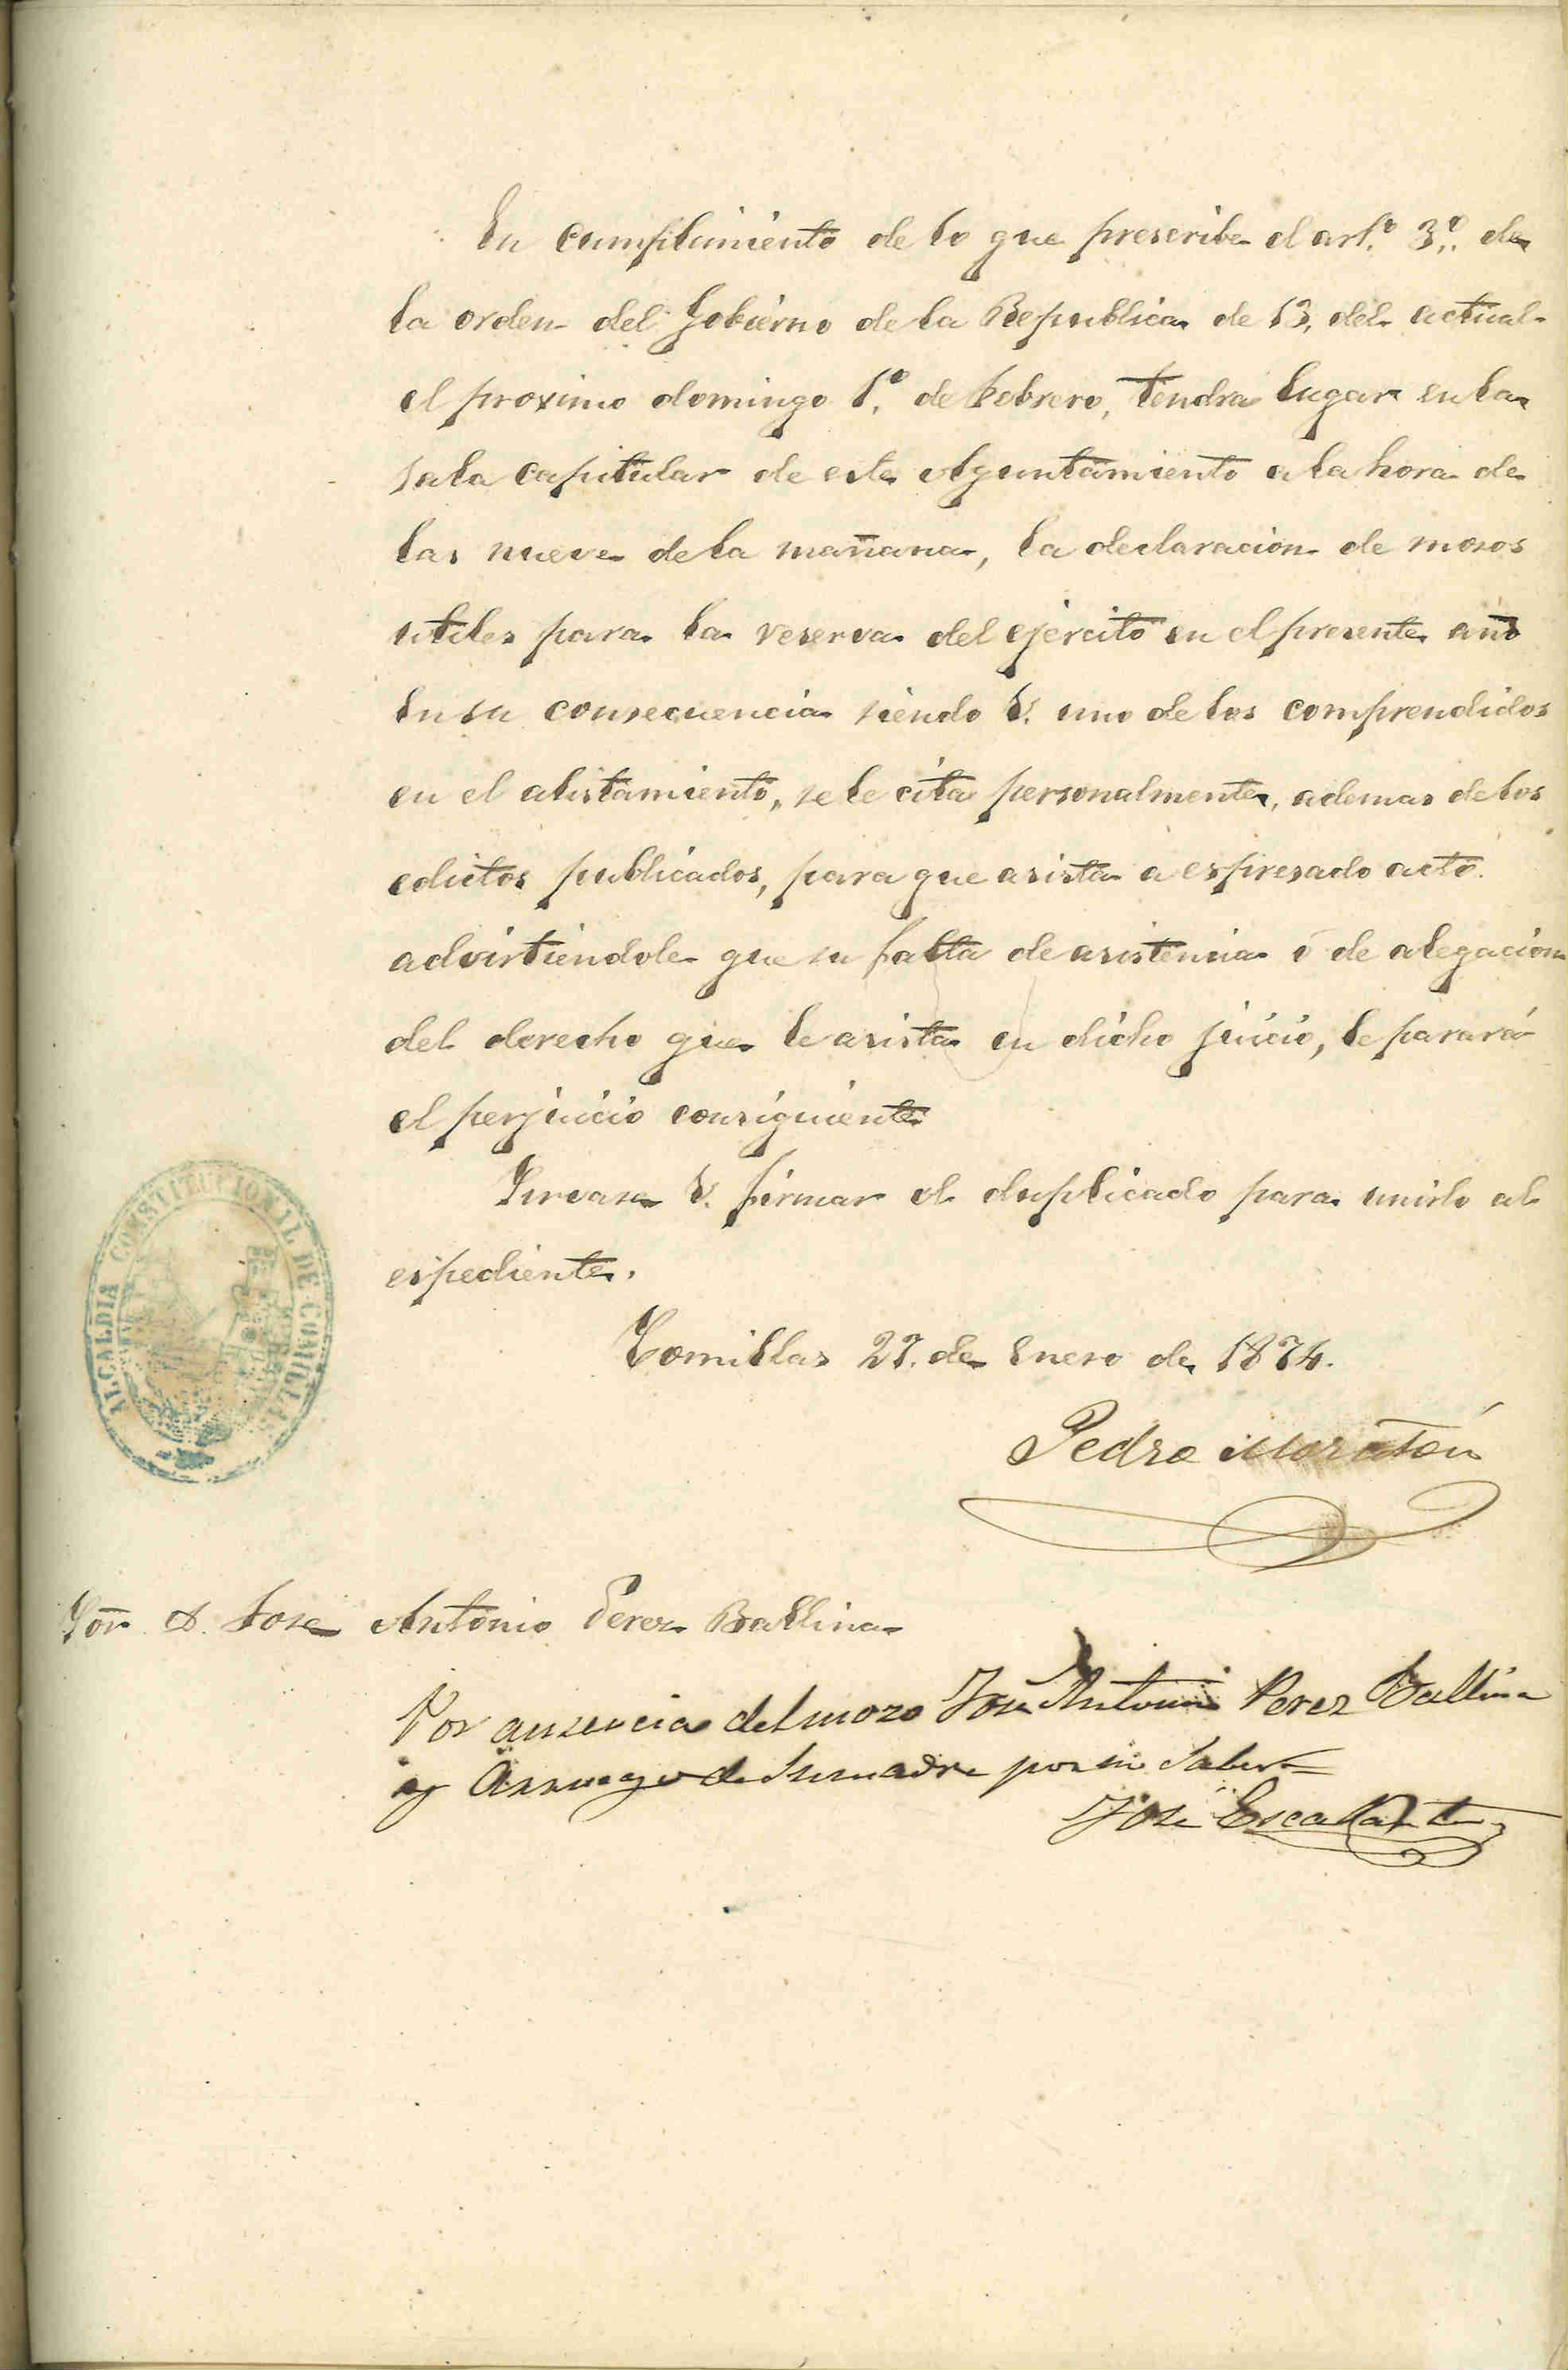 En cumplimiento de lo que prescribe el art.º 3.º de
la orden del Gobierno de la Republica de 13, del actual
el proximo domingo 1.º de Febrero, tendra lugar en la
sala capitular de este Ayuntamiento a la hora de
las nueve de la mañana, la declaracion de mosos
utiles para la reserva del ejercito en el presente año
En su consecuencia siendo V. uno de los comprendidos
en el alistamiento, se le cita personalmente, ademas de los
edictos publicados, para que asista a espresado acto.
advirtiendole que su falta de asistencia ó de alegacion
del derecho que le asista en dicho juicio, le parará
el perjuicio consiguiente
Sirvase V. firmar el duplicado para unirlo al
espediente.
ALCALDIA CONSTITUCIONAL DE COMILLAS
Comillas 27. de Enero de 1874.
Pedro Moratón
Sor. D. Jose Antonio Perez Ballina
Por ausencia del mozo José Antonio Perez Ballina
y Arruego de Su madre por no Saber
Jose Escalante